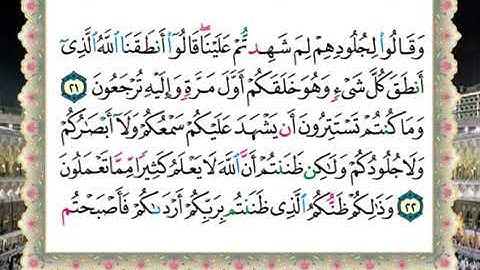 وَقَالُوا۟ لِجُلُودِهِمْ لِمَ شَهِدتُّمْ عَلَيْنَا ۖ قَالُوٓا۟ أَنطَقَنَا ٱللَّهُ ٱلَّذِىٓ
أَنطَقَ كُلَّ شَىْءٍ وَهُوَ خَلَقَكُمْ أَوَّلَ مَرَّةٍ وَإِلَيْهِ تُرْجَعُونَ ٢١
وَمَا كُنتُمْ تَسْتَتِرُونَ أَن يَشْهَدَ عَلَيْكُمْ سَمْعُكُمْ وَلَآ أَبْصَـٰرُكُمْ
وَلَا جُلُودُكُمْ وَلَـٰكِن ظَنَنتُمْ أَنَّ ٱللَّهَ لَا يَعْلَمُ كَثِيرًا مِّمَّا تَعْمَلُونَ
٢٢ وَذَٰلِكُمْ ظَنُّكُمُ ٱلَّذِى ظَنَنتُم بِرَبِّكُمْ أَرْدَىٰكُمْ فَأَصْبَحْتُم